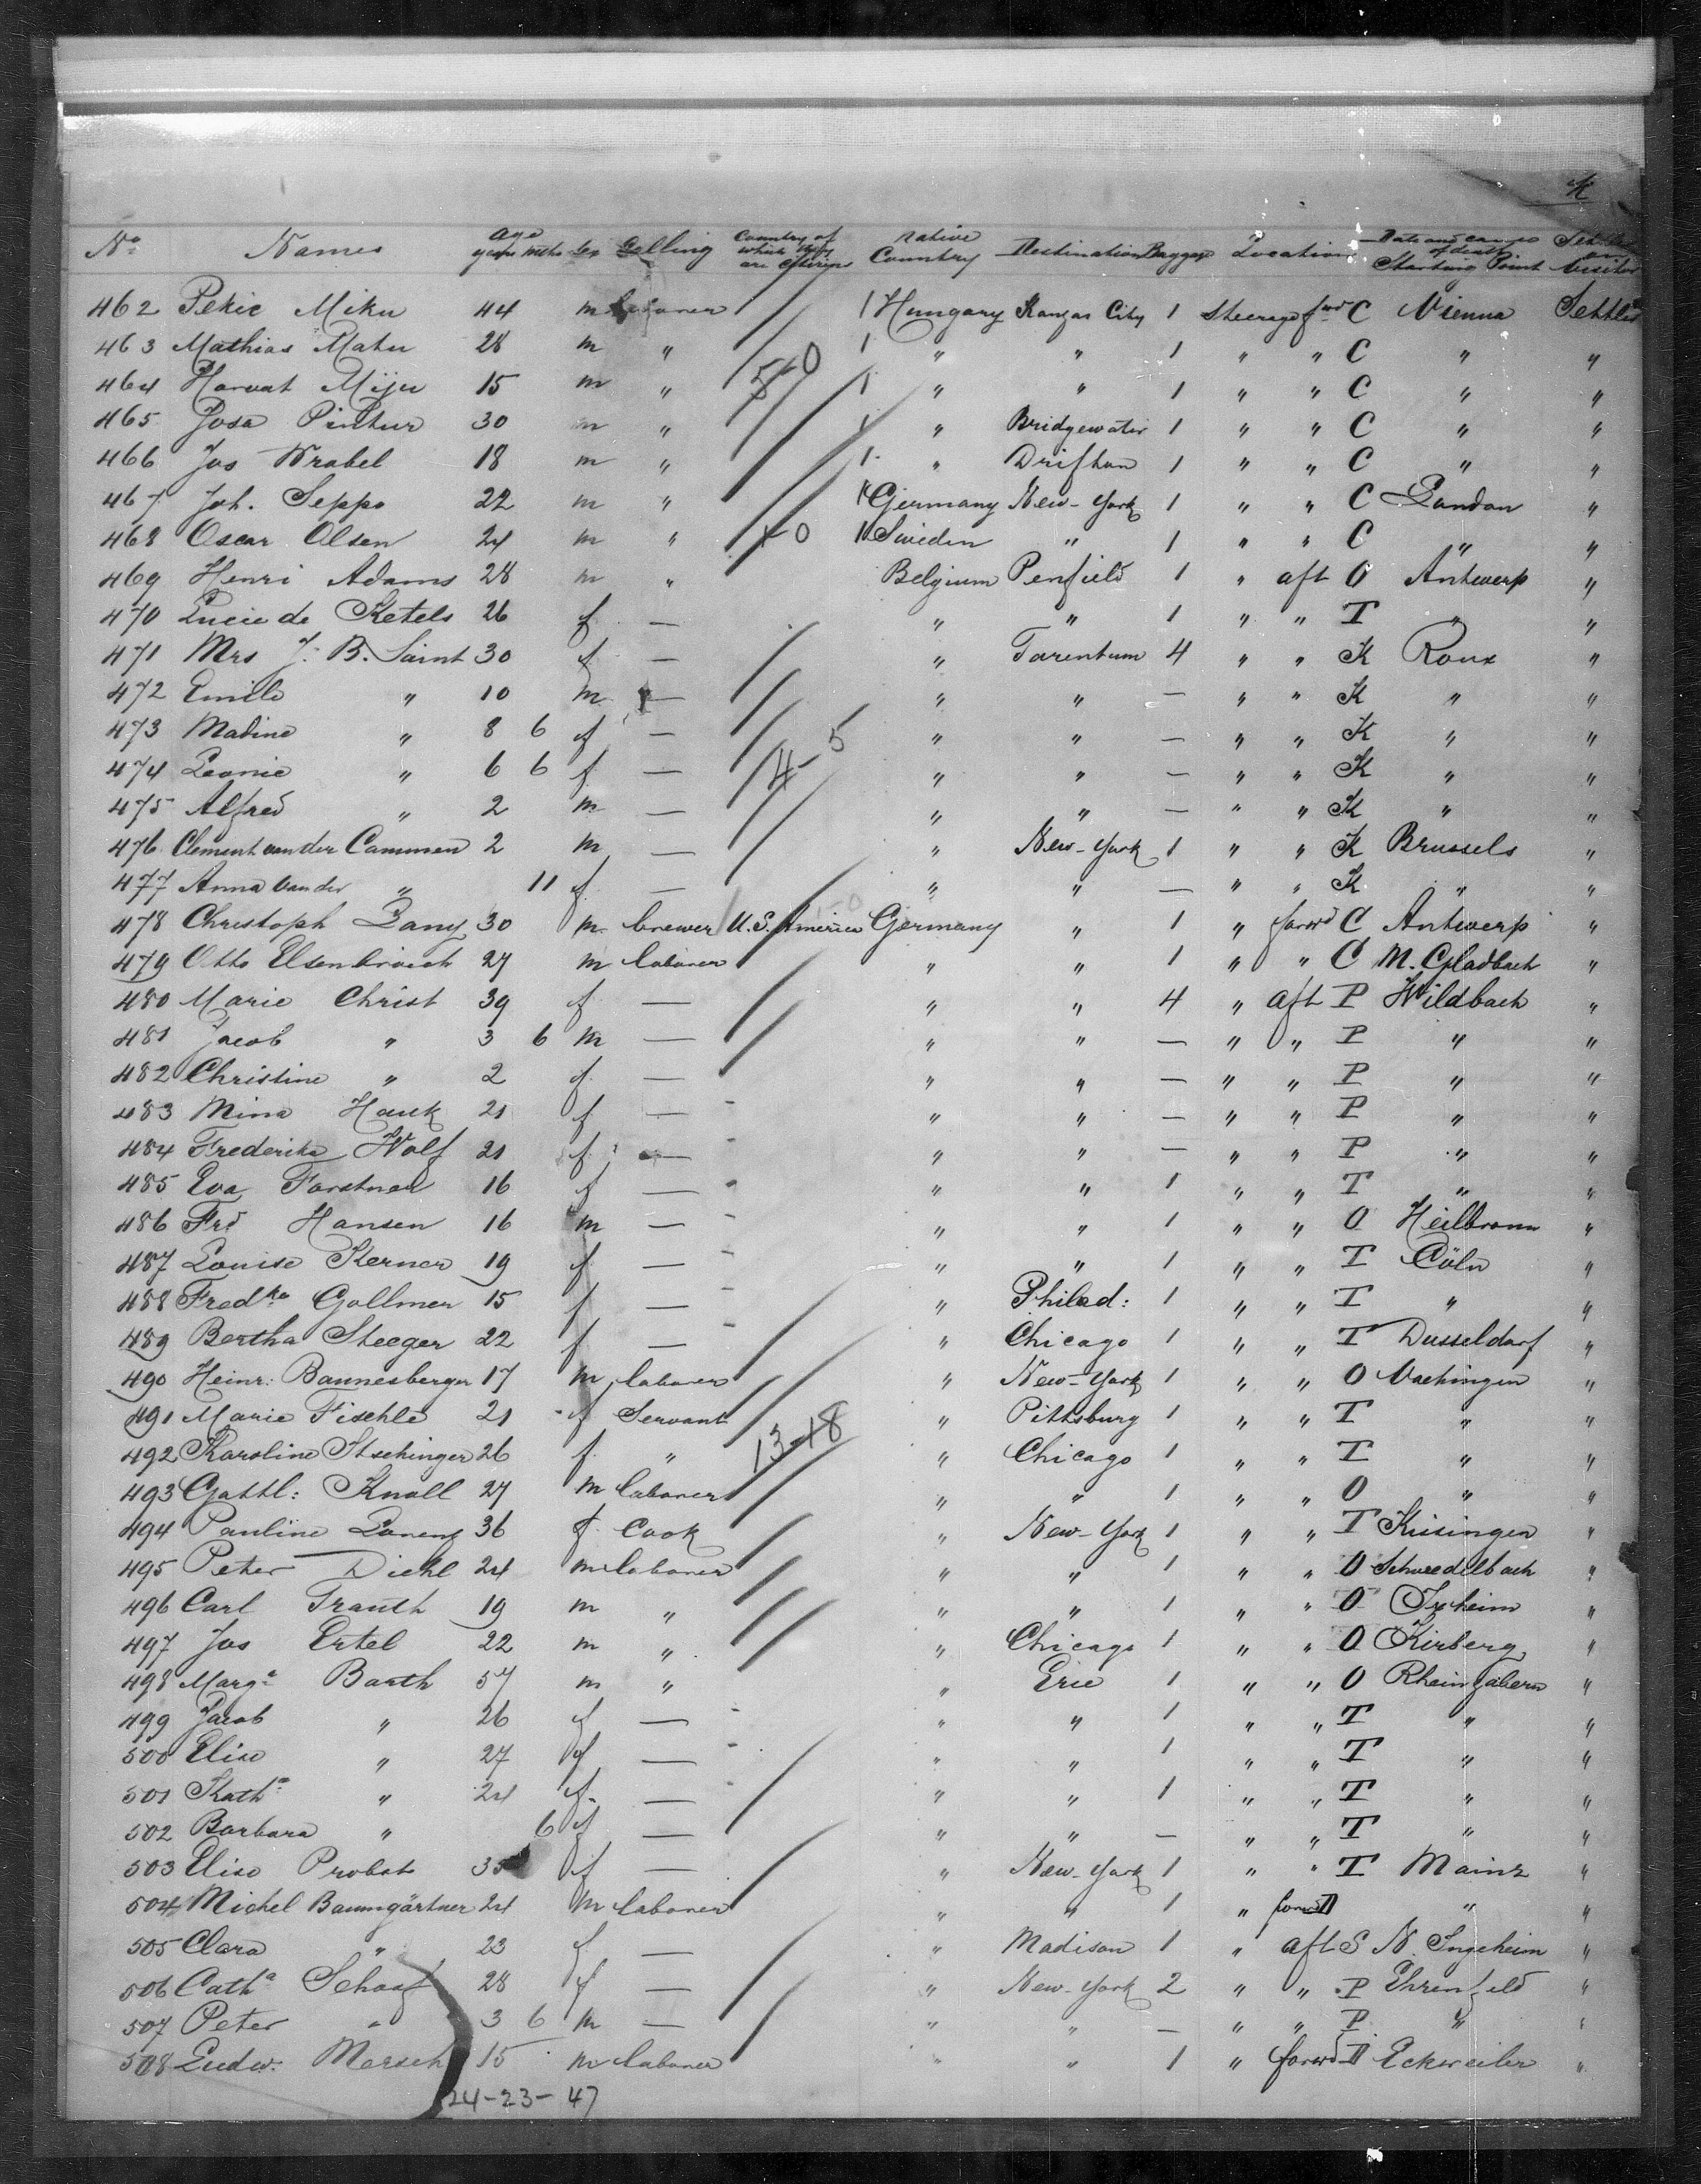 K
No. Names Age years mths Sex Calling Country of which they are Citizens Native Country Destination Baggage Location Date and cause of death Starting Point Settler or Visitor
462 Pekic Miku 44 m laborer 1 Hungary Kanzas City 1 Steerage fwd C Vienna Settler
463 Mathias Matu 28 m " 1 " " 1 " " C " "
5-0
464 Horvat Miju 15 m " 1 " " 1 " " C " "
465 Josa Pintur 30 m " 1 " Bridgewater 1 " " C " "
466 Jos Wrabel 18 m " 1 " Drifton 1 " " C " "
467 Joh. Seppo 22 m " 1 Germany New-York 1 " " C London "
468 Oscar Olsen 24 m " 1 Sweden " 1 " " C " "
469 Henri Adams 28 m " Belgium Penfield 1 " aft O Antwerp "
470 Lucie de Ketels 26 f — " " 1 " " T " "
471 Mrs J. B. Saint 30 f — " Tarentum 4 " " K Roux "
472 Emile " 10 m — " " — " " K " "
473 Madine " 8 6 f — " " — " " K " "
4-5
474 Leonie " 6 6 f — " " — " " K " "
475 Alfred " 2 m — " " — " " K " "
476 Clement van der Cammen 2 m — " New-York 1 " " K Brussels "
477 Anna van der " 11 f — " " — " " K " "
478 Christoph Lang 30 m brewer U.S. America Germany " 1 " forwd C Antwerp "
479 Otto Elsenbroich 27 m laborer " " 1 " " C M. Gladbach "
480 Marie Christ 39 f — " " 4 " aft P Wildbach "
481 Jacob " 3 6 m — " " — " " P " "
482 Christine " 2 f — " " — " " P " "
483 Mina Hauk 21 f — " " — " " P " "
484 Frederika Wolf 21 f — " " — " " P " "
485 Eva Forstner 16 f — " " 1 " " T " "
486 Frd Hansen 16 m — " " 1 " " O Heilbronn "
487 Louise Kerner 19 f — " " 1 " " T Cöln "
488 Fredka Gollmer 15 f — " Philad: 1 " " T " "
489 Bertha Steeger 22 f — " Chicago 1 " " T Dusseldorf "
490 Heinr: Bannesberger 17 m laborer " New-York 1 " " O Vaehingen "
491 Marie Fischle 21 f Servant " Pittsburg 1 " " T " "
13-18
492 Karoline Itschinger 26 f " " Chicago 1 " " T " "
493 Gottl: Knoll 27 m laborer " " 1 " " O " "
494 Pauline Lorenz 36 f Cook " New-York 1 " " T Kissingen "
495 Peter Diehl 24 m laborer " " 1 " " O Schweedelbach "
496 Carl Trauth 19 m " " " 1 " " O Inheim "
497 Jos Ertel 22 m " " Chicago 1 " " O Kirberg "
498 Marga Barth 57 m " " Erie 1 " " O Rheinzabern "
499 Jacob " 26 f — " " 1 " " T " "
500 Elise " 27 f — " " 1 " " T " "
501 Katha " 24 f — " " 1 " " T " "
502 Barbara " 6 f — " " — " " T " "
503 Elise Probst 35 f — " New-York 1 " " T Mainz "
504 Michel Baumgärtner 24 m laborer " " 1 " forwd D " "
505 Clara " 23 f — " Madison 1 " aft S N. Ingeheim "
506 Catha Schaaf 28 f — " New-York 2 " " P Ehrenfeld "
507 Peter " 3 6 m — " " — " " P " "
508 Ludw. Morsch 15 m laborer " " 1 " forwd D Eckweiler "
24-23-47